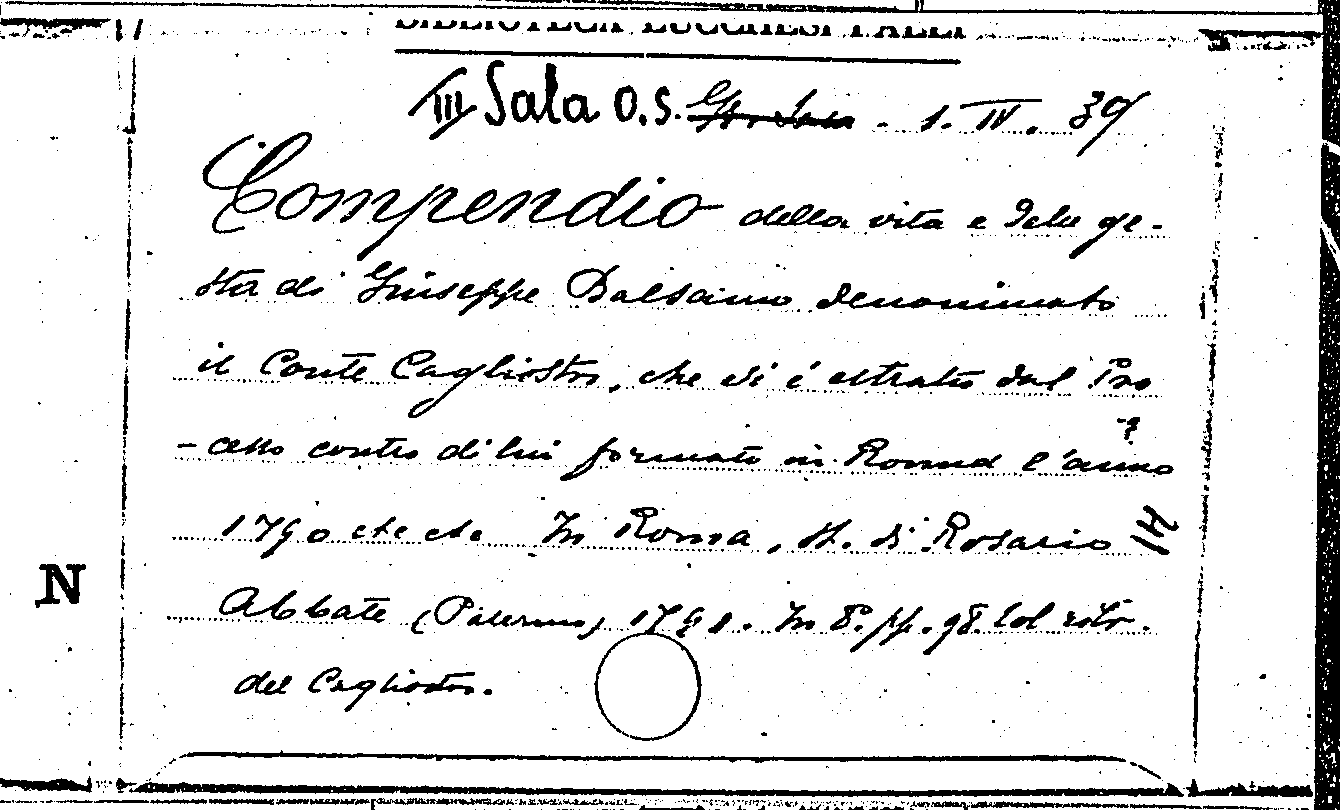 BIBLIOTECA LUCCHESI PALLI
III Sala O.S. - 1. IV. 39
Compendio della vita e delle ge-
sta di Giuseppe Balsamo denominato
il Conte Cagliostro, che si è estratto dal Pro
-cesso contro di lui formato in Roma l'anno
1790 etc etc. In Roma, st. di Rosario
Abbate (Palermo) 1791. In 8°. pp. 98. Col ritr.
del Cagliostro.
N